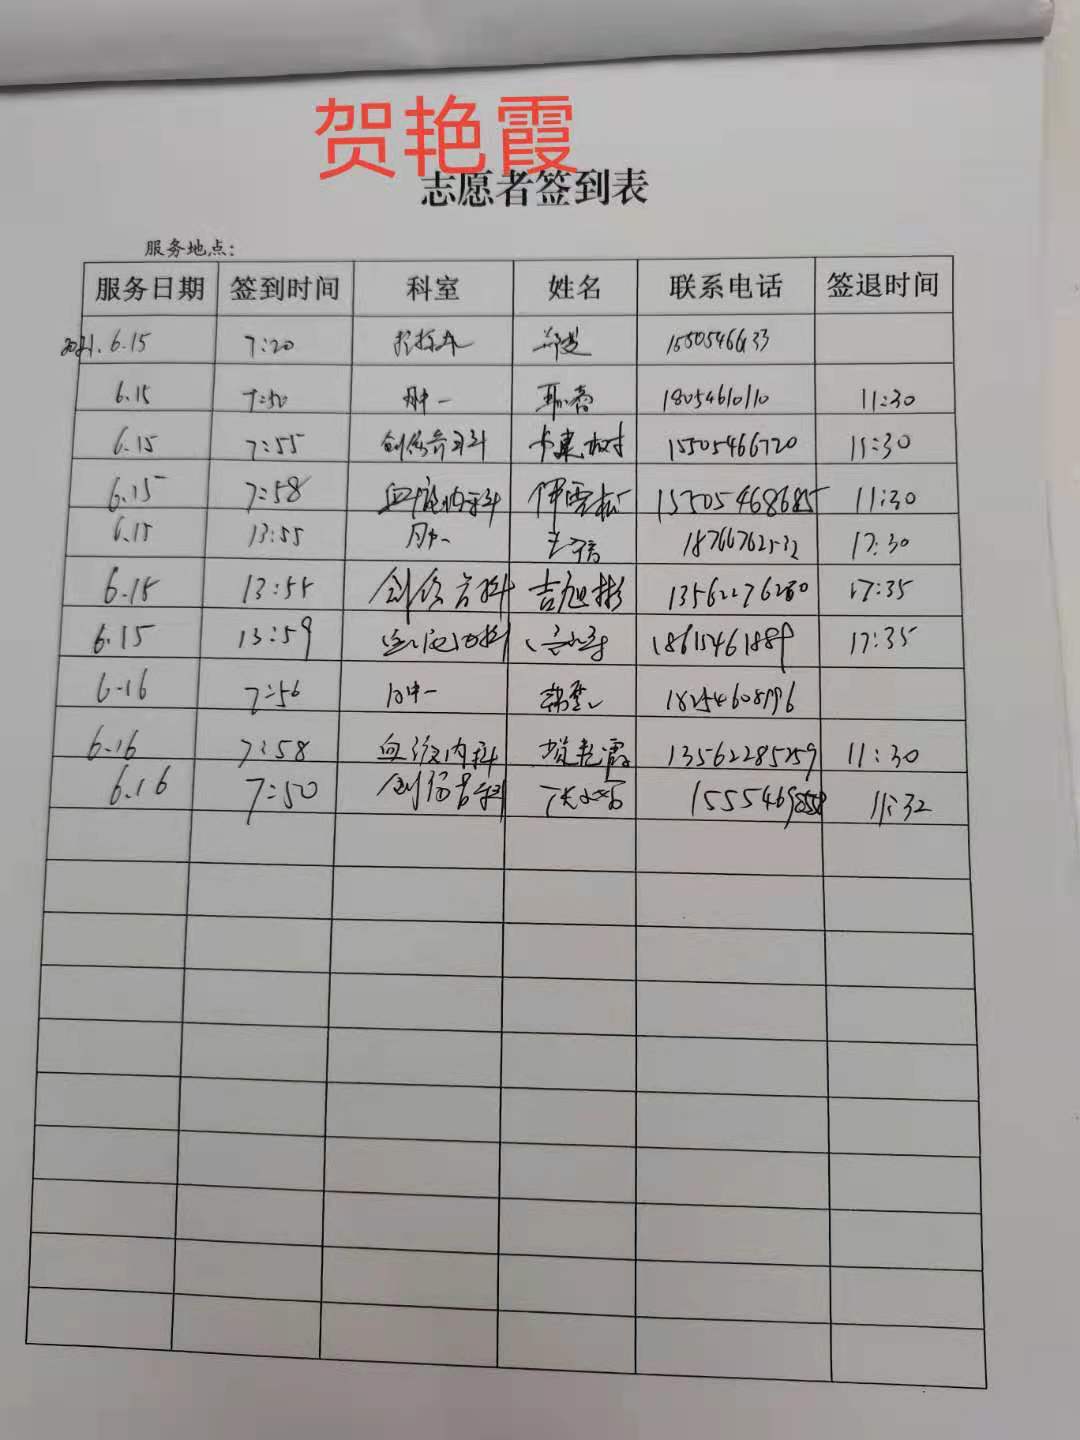 贺艳霞
志愿者签到表
服务地点:
服务日期 签到时间 科室 姓名 联系电话 签退时间
2021.6.15 7:20
6.15 7:50 肿一 18054610110 11:30
6.15 7:55 创伤骨科 15505466720 11:30
6.15 7:58 血液内科 伊雪松 11:30
6.15 13:55 肿一 17:30
6.15 13:55 创伤骨科 吉旭彬 17:35
6.15 13:59 血液内科 18615461889 17:35
6.16 7:56 肿一 18254608996
6.16 7:58 血液内科 贺艳霞 13562285259 11:30
6.16 7:50 创伤骨科 11:32